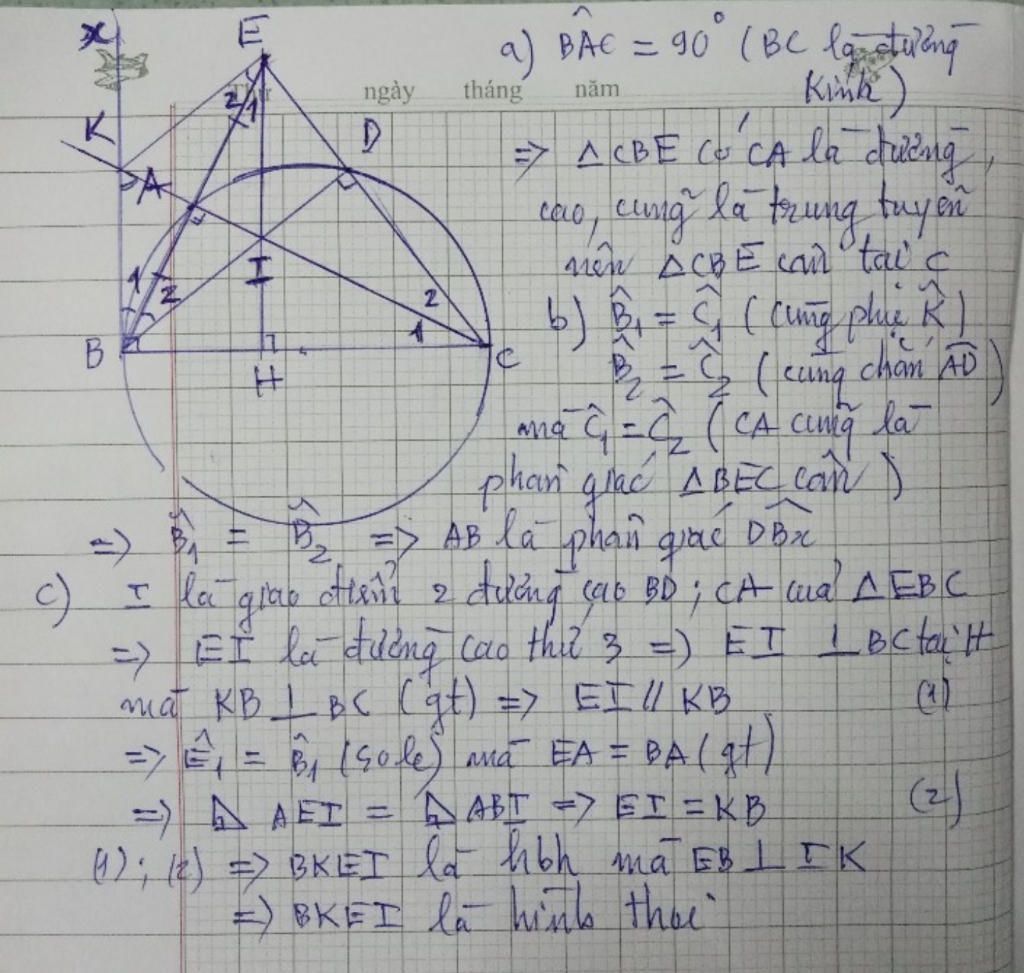 x
E
Thứ ngày tháng năm
2 1
K
D
A
I
1 2
2
1
B
H
C
a) BÂC = 90° (BC là đường
kính)
=> △CBE có CA là đường
cao, cũng là trung tuyến
nên △CBE cân tại C
b) B̂₁ = Ĉ₁ (cùng phụ K̂)
B̂₂ = Ĉ₂ (cùng chắn AD)
mà Ĉ₁ = Ĉ₂ (CA cũng là
phân giác △BEC cân)
=> B̂₁ = B̂₂ => AB là phân giác DB̂x
c) I là giao điểm 2 đường cao BD; CA của △EBC
=> EI là đường cao thứ 3 => EI ⊥ BC tại H
mà KB ⊥ BC (gt) => EI // KB (1)
=> Ê₁ = B̂₁ (sole) mà EA = BA (gt)
=> ⊿ AEI = ⊿ ABI => EI = KB (2)
(1); (2) => BKEI là hbh mà EB ⊥ IK
=> BKEI là hình thoi